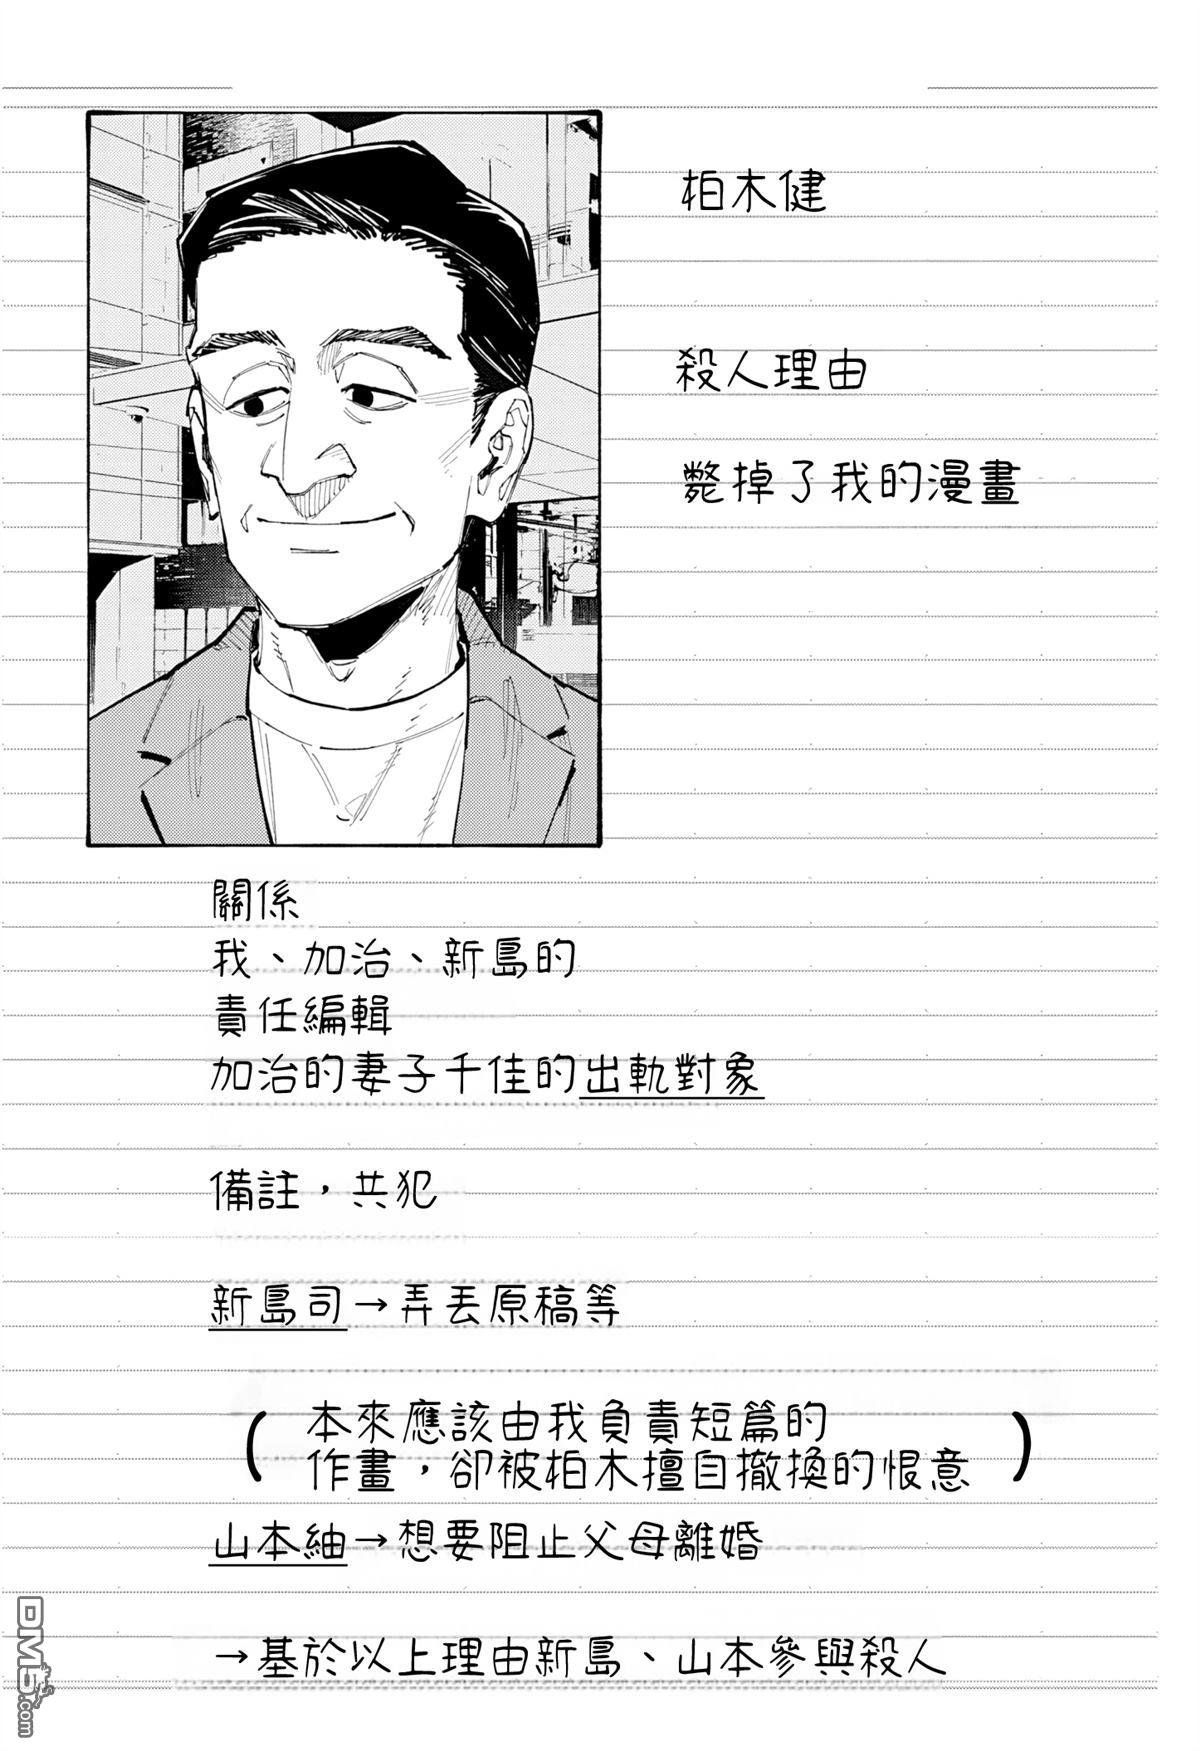 柏木健
殺人理由
斃掉了我的漫畫
關係
我、加治、新島的
責任編輯
加治的妻子千佳的出軌對象
備註，共犯
新島司→弄丟原稿等
(本來應該由我負責短篇的
作畫，卻被柏木擅自撤換的恨意)
山本紬→想要阻止父母離婚
→基於以上理由新島、山本參與殺人
DM5.com